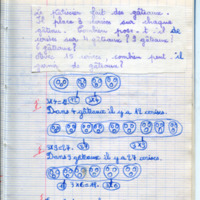 Le pâtissier fait des gâteaux.
Il place 3 cerises sur chaque
gâteau. Combien pose-t-il de
cerises sur 4 gâteaux ? 9 gâteaux ?
6 gâteaux ?
Avec 15 cerises, combien peut-il
de gâteaux ?
Dans 4 gâteaux il y a 12 cerises.
3x9=27.
Dans 9 gâteaux il y a 27 cerises.
3x6=18.